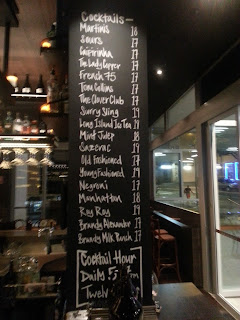 Cocktails-
Martinis 18
Sours 17
Caipirinha 17
The Lady Copper 17
French 75 17
Tom Collins 17
The Clover Club 17
Surry Sling 19
Long Island Ice Tea 17
Mint Julep 18
Sazerac 19
Old Fashioned 17
Young Fashioned 19
Negroni 17
Manhattan 18
Roy Roy 19
Brandy Alexander 17
Brandy Milk Punch 17
Cocktail Hour
Daily 5
Twelve